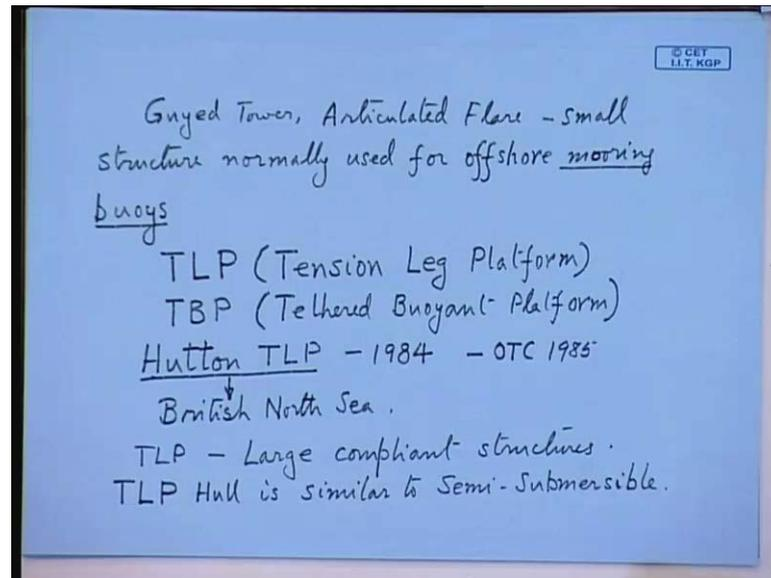 © CET
I.I.T. KGP
Guyed Tower, Articulated Flare - small
structure normally used for offshore mooring
buoys
TLP (Tension Leg Platform)
TBP (Tethered Buoyant Platform)
Hutton TLP - 1984 - OTC 1985
British North Sea.
TLP - Large compliant structures.
TLP Hull is similar to Semi-Submersible.